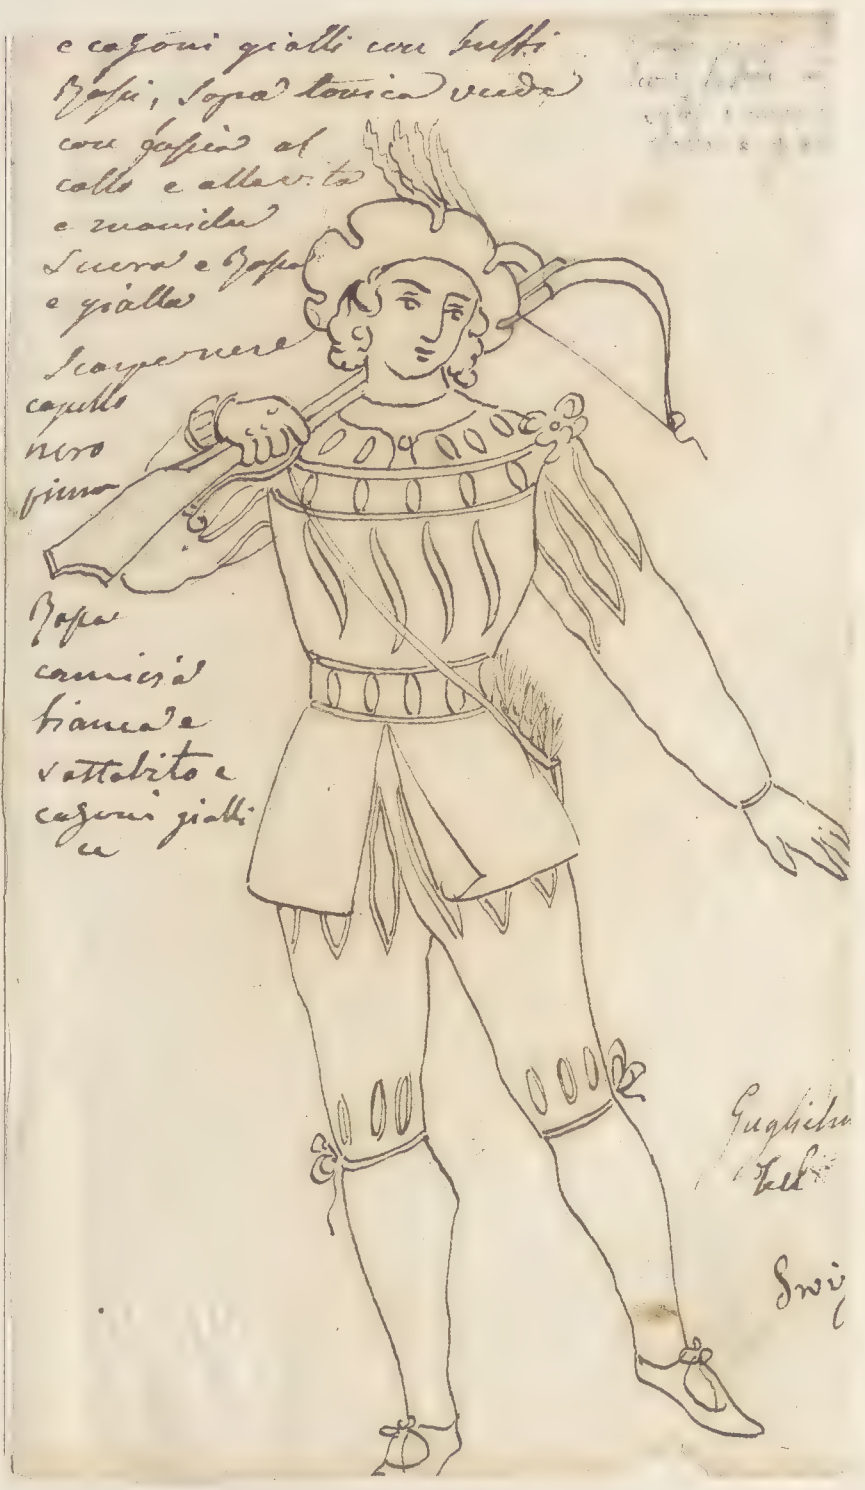 e cagoni gialli con buffi
Rossi, sopra tonica verde
con fascia al
collo e alla vita
e maniche
e Rossa
e gialla
Scarpe nere
capello
nero
piuma
Rossa
camicia
bianca e
sottabito e
cagoni gialli
Guglielmo
Tell